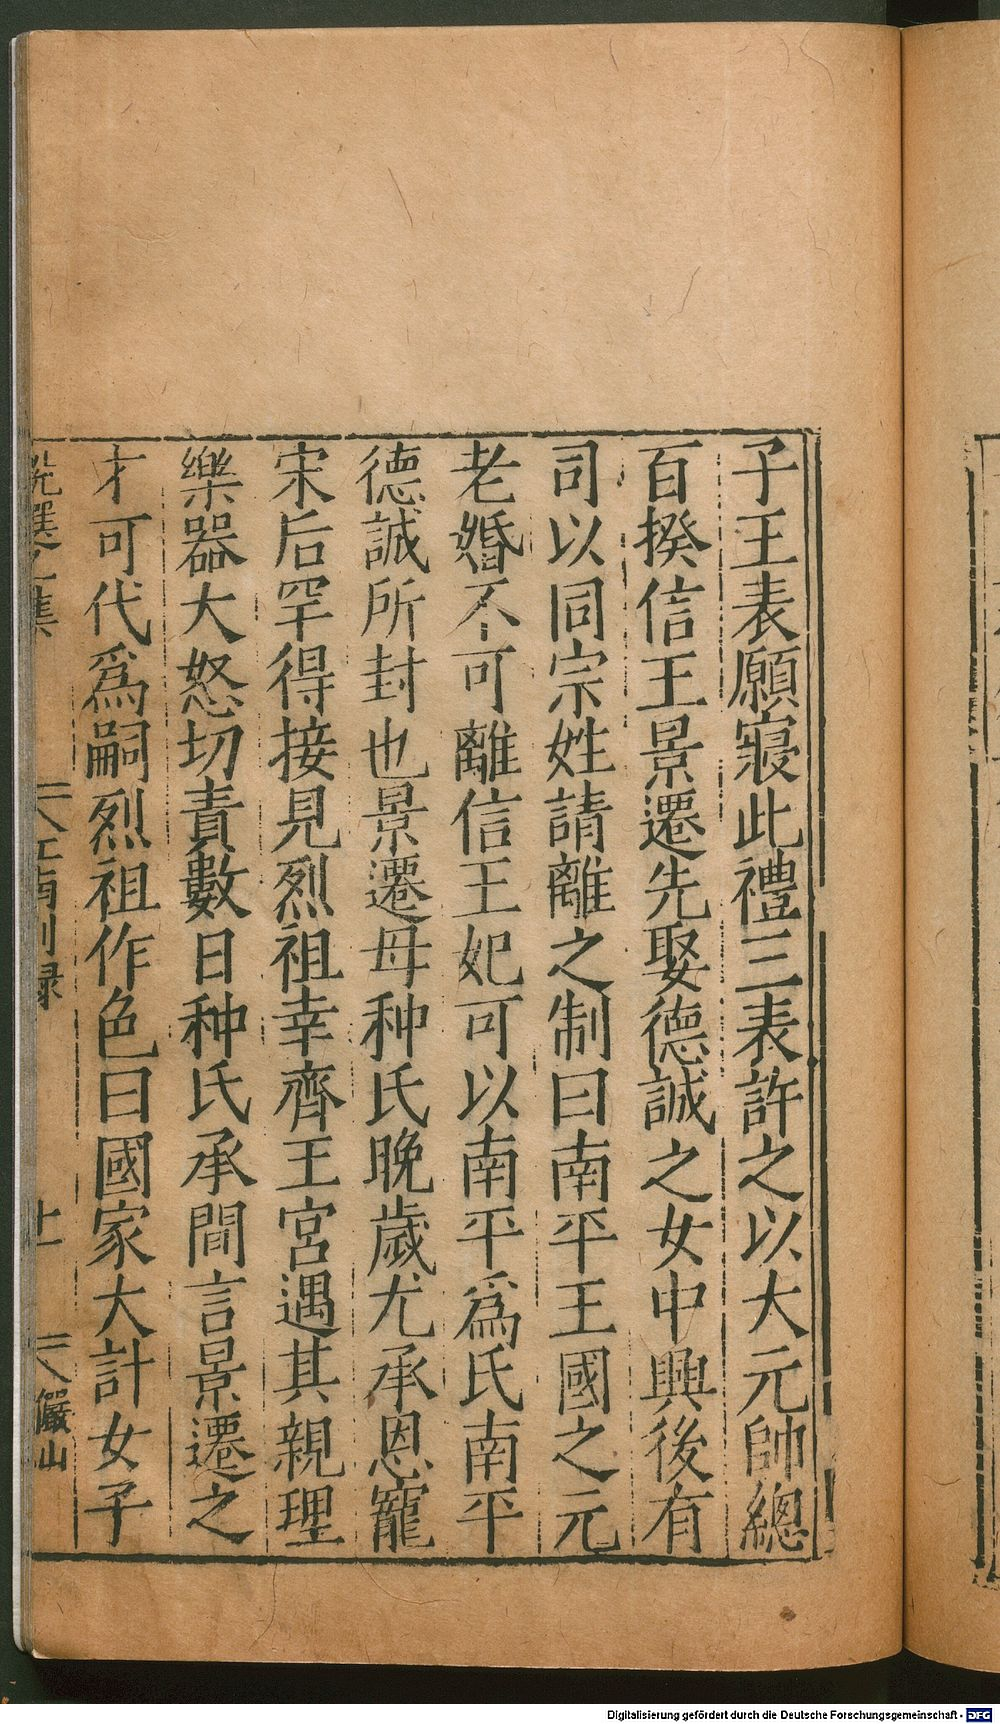 子王表願寢此禮三表許之以大元帥總
百揆信王景遷先娶德誠之女中興後有
司以同宗姓請離之制曰南平王國之元
老婚不可離信王妃可以南平爲氏南平
德誠所封也景遷母种氏晚歲尤承恩寵
宋后罕得接見烈祖幸齊王宮遇其親理
樂器大怒切責數日种氏承間言景遷之
才可代爲嗣烈祖作色曰國家大計女子
說選之集 江南別録 上 儼山
Digitalisierung gefördert durch die Deutsche Forschungsgemeinschaft - DFG